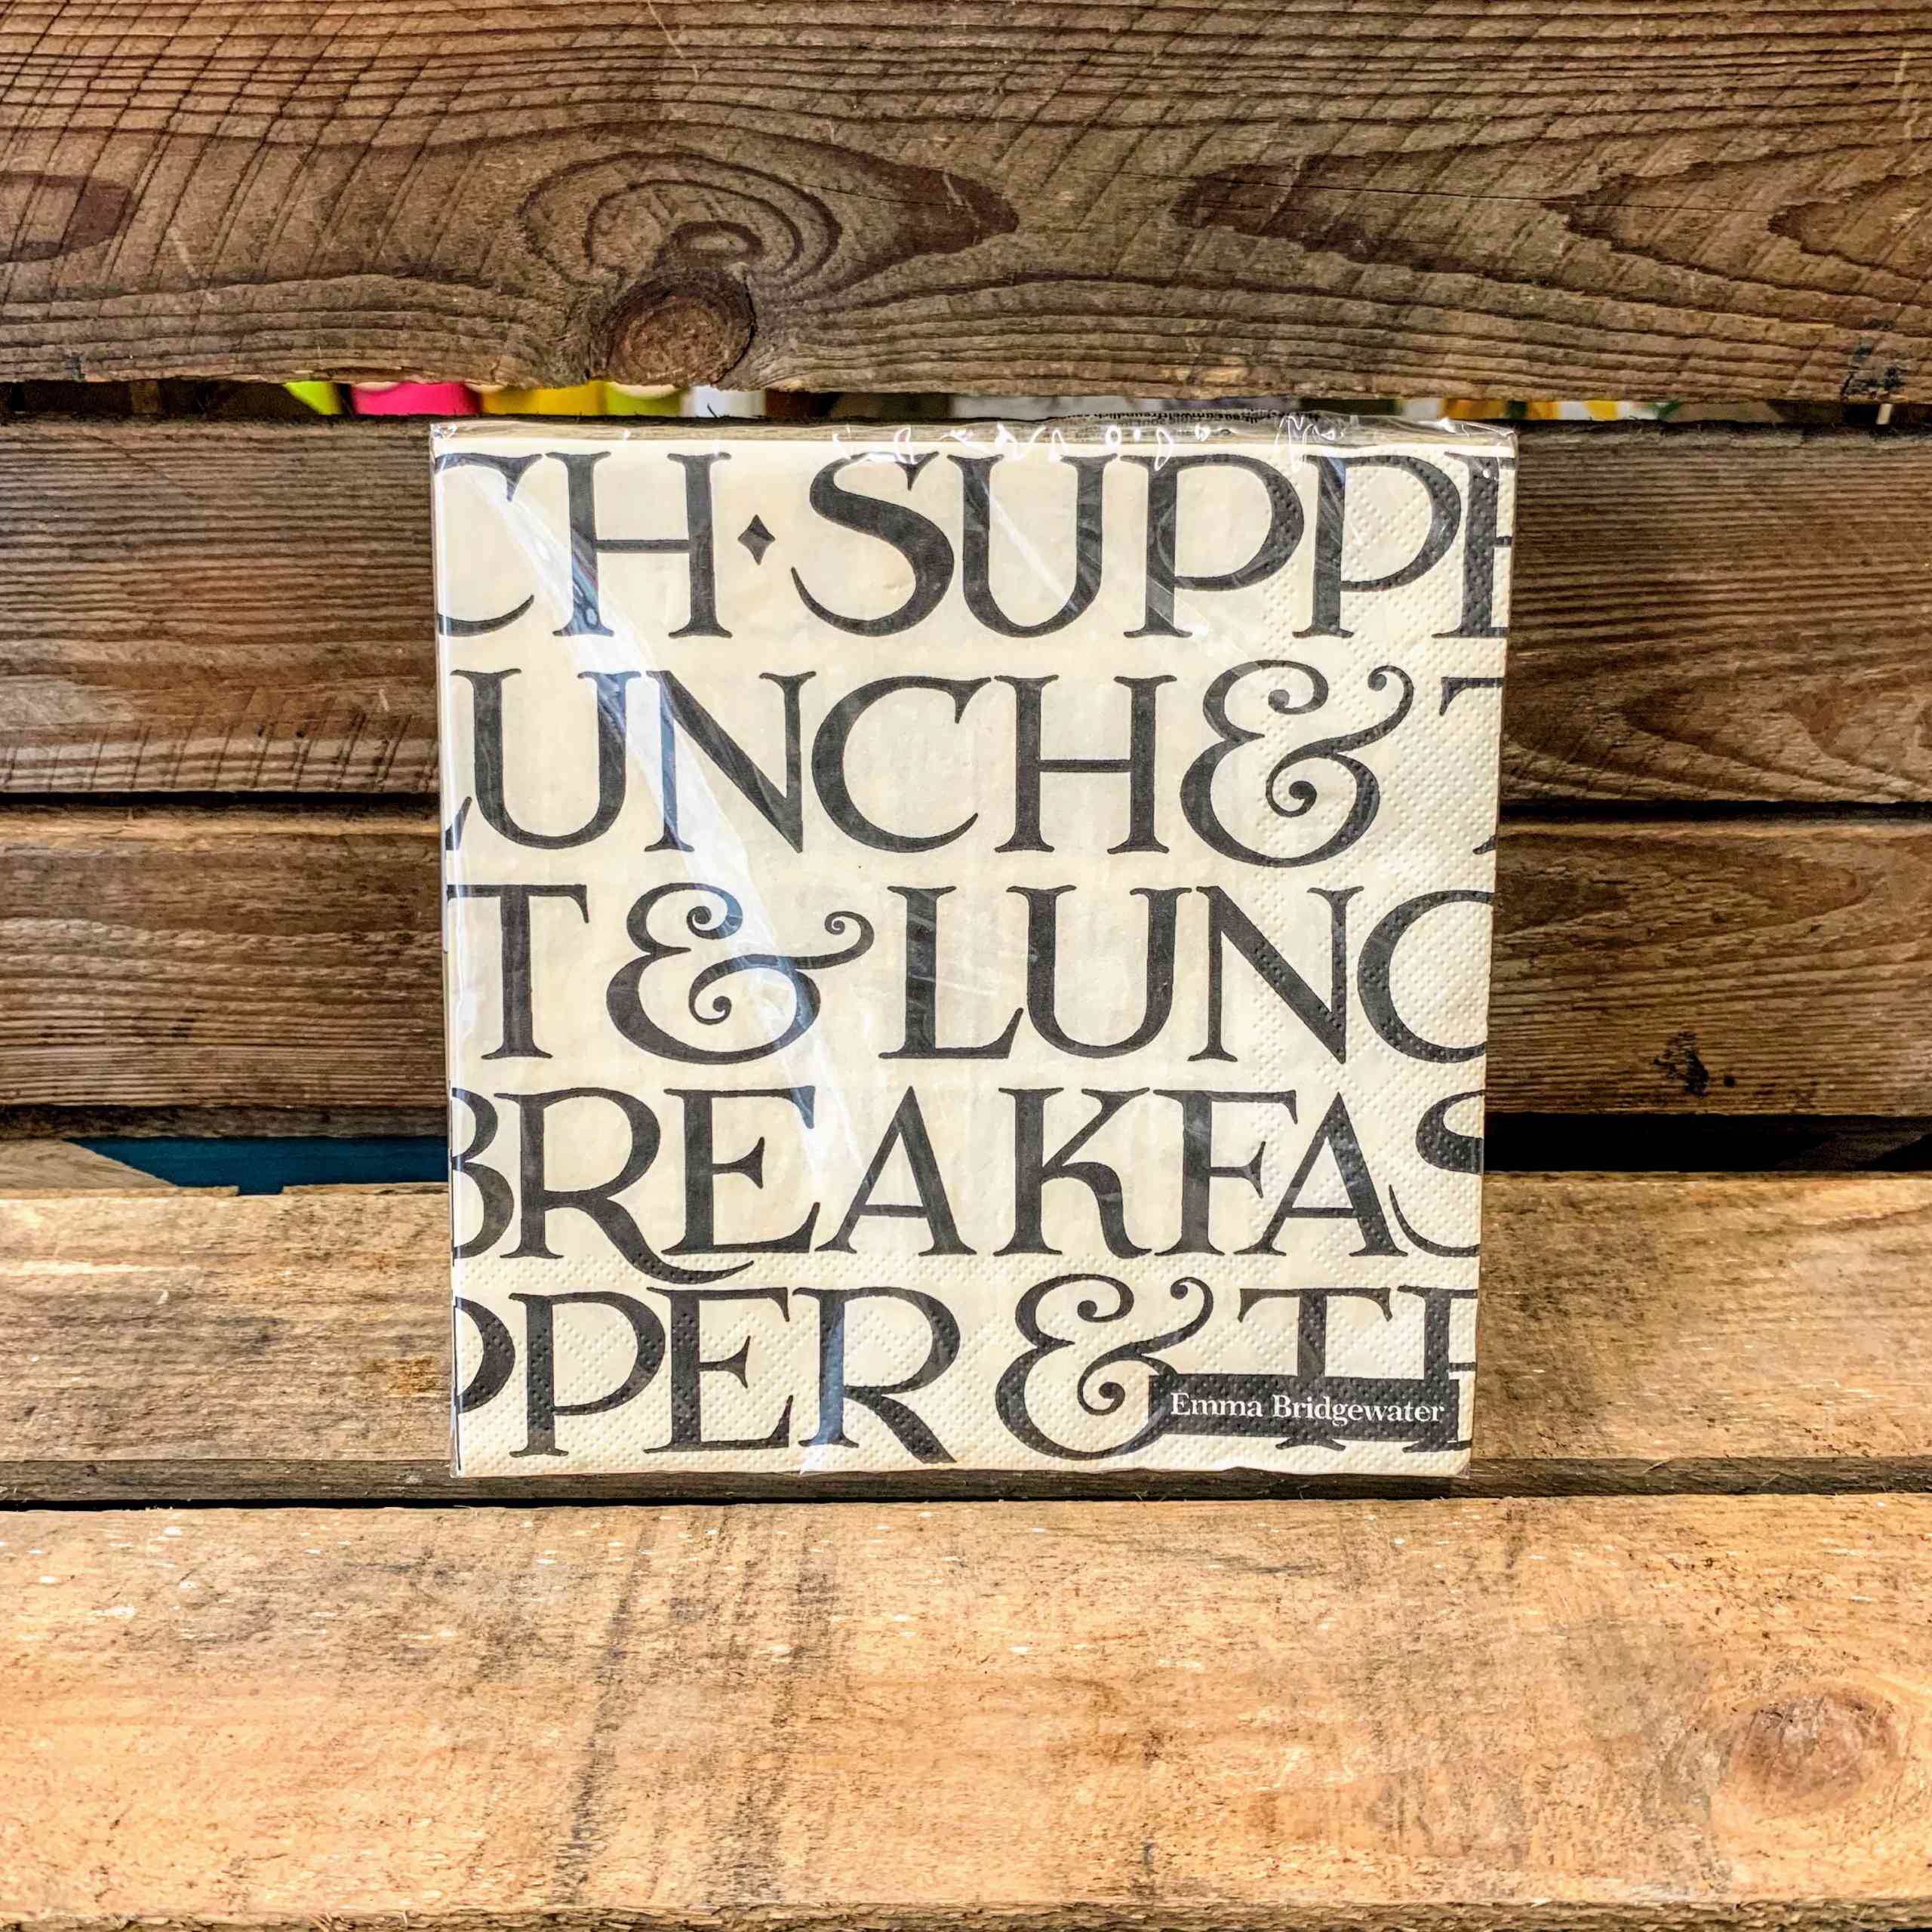 CH · SUPPE
LUNCH & T
T & LUNC
BREAKFAS
PPER & TE
Emma Bridgewater